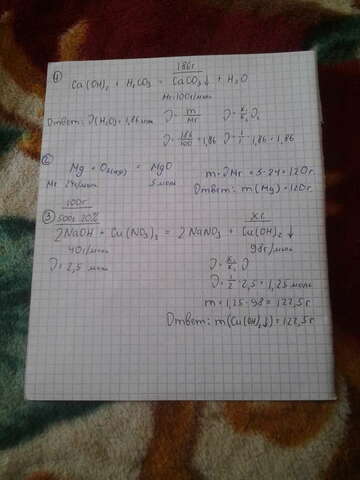 ①
186г
Ca(OH)₂ + H₂CO₃ = CaCO₃↓ + H₂O
Mr 100г/моль
Ответ: ν(H₂O) = 1,86 моль
ν = m/Mr ν = к₁/к₂ ν₂
ν = 186/100 = 1,86 ν = 1/1 · 1,86 = 1,86
②
Mg + O₂ = MgO
Mr 24г/моль 5 моль
m = ν Mr = 5 · 24 = 120г
Ответ: m(Mg) = 120г
100г
③ 500г 20% х г
2NaOH + Cu(NO₃)₂ = 2NaNO₃ + Cu(OH)₂↓
40г/моль 98г/моль
ν = 2,5 моль
ν = к₁/к₂ ν
ν = 1/2 · 2,5 = 1,25 моль
m = 1,25 · 98 = 122,5г
Ответ: m(Cu(OH)₂↓) = 122,5г